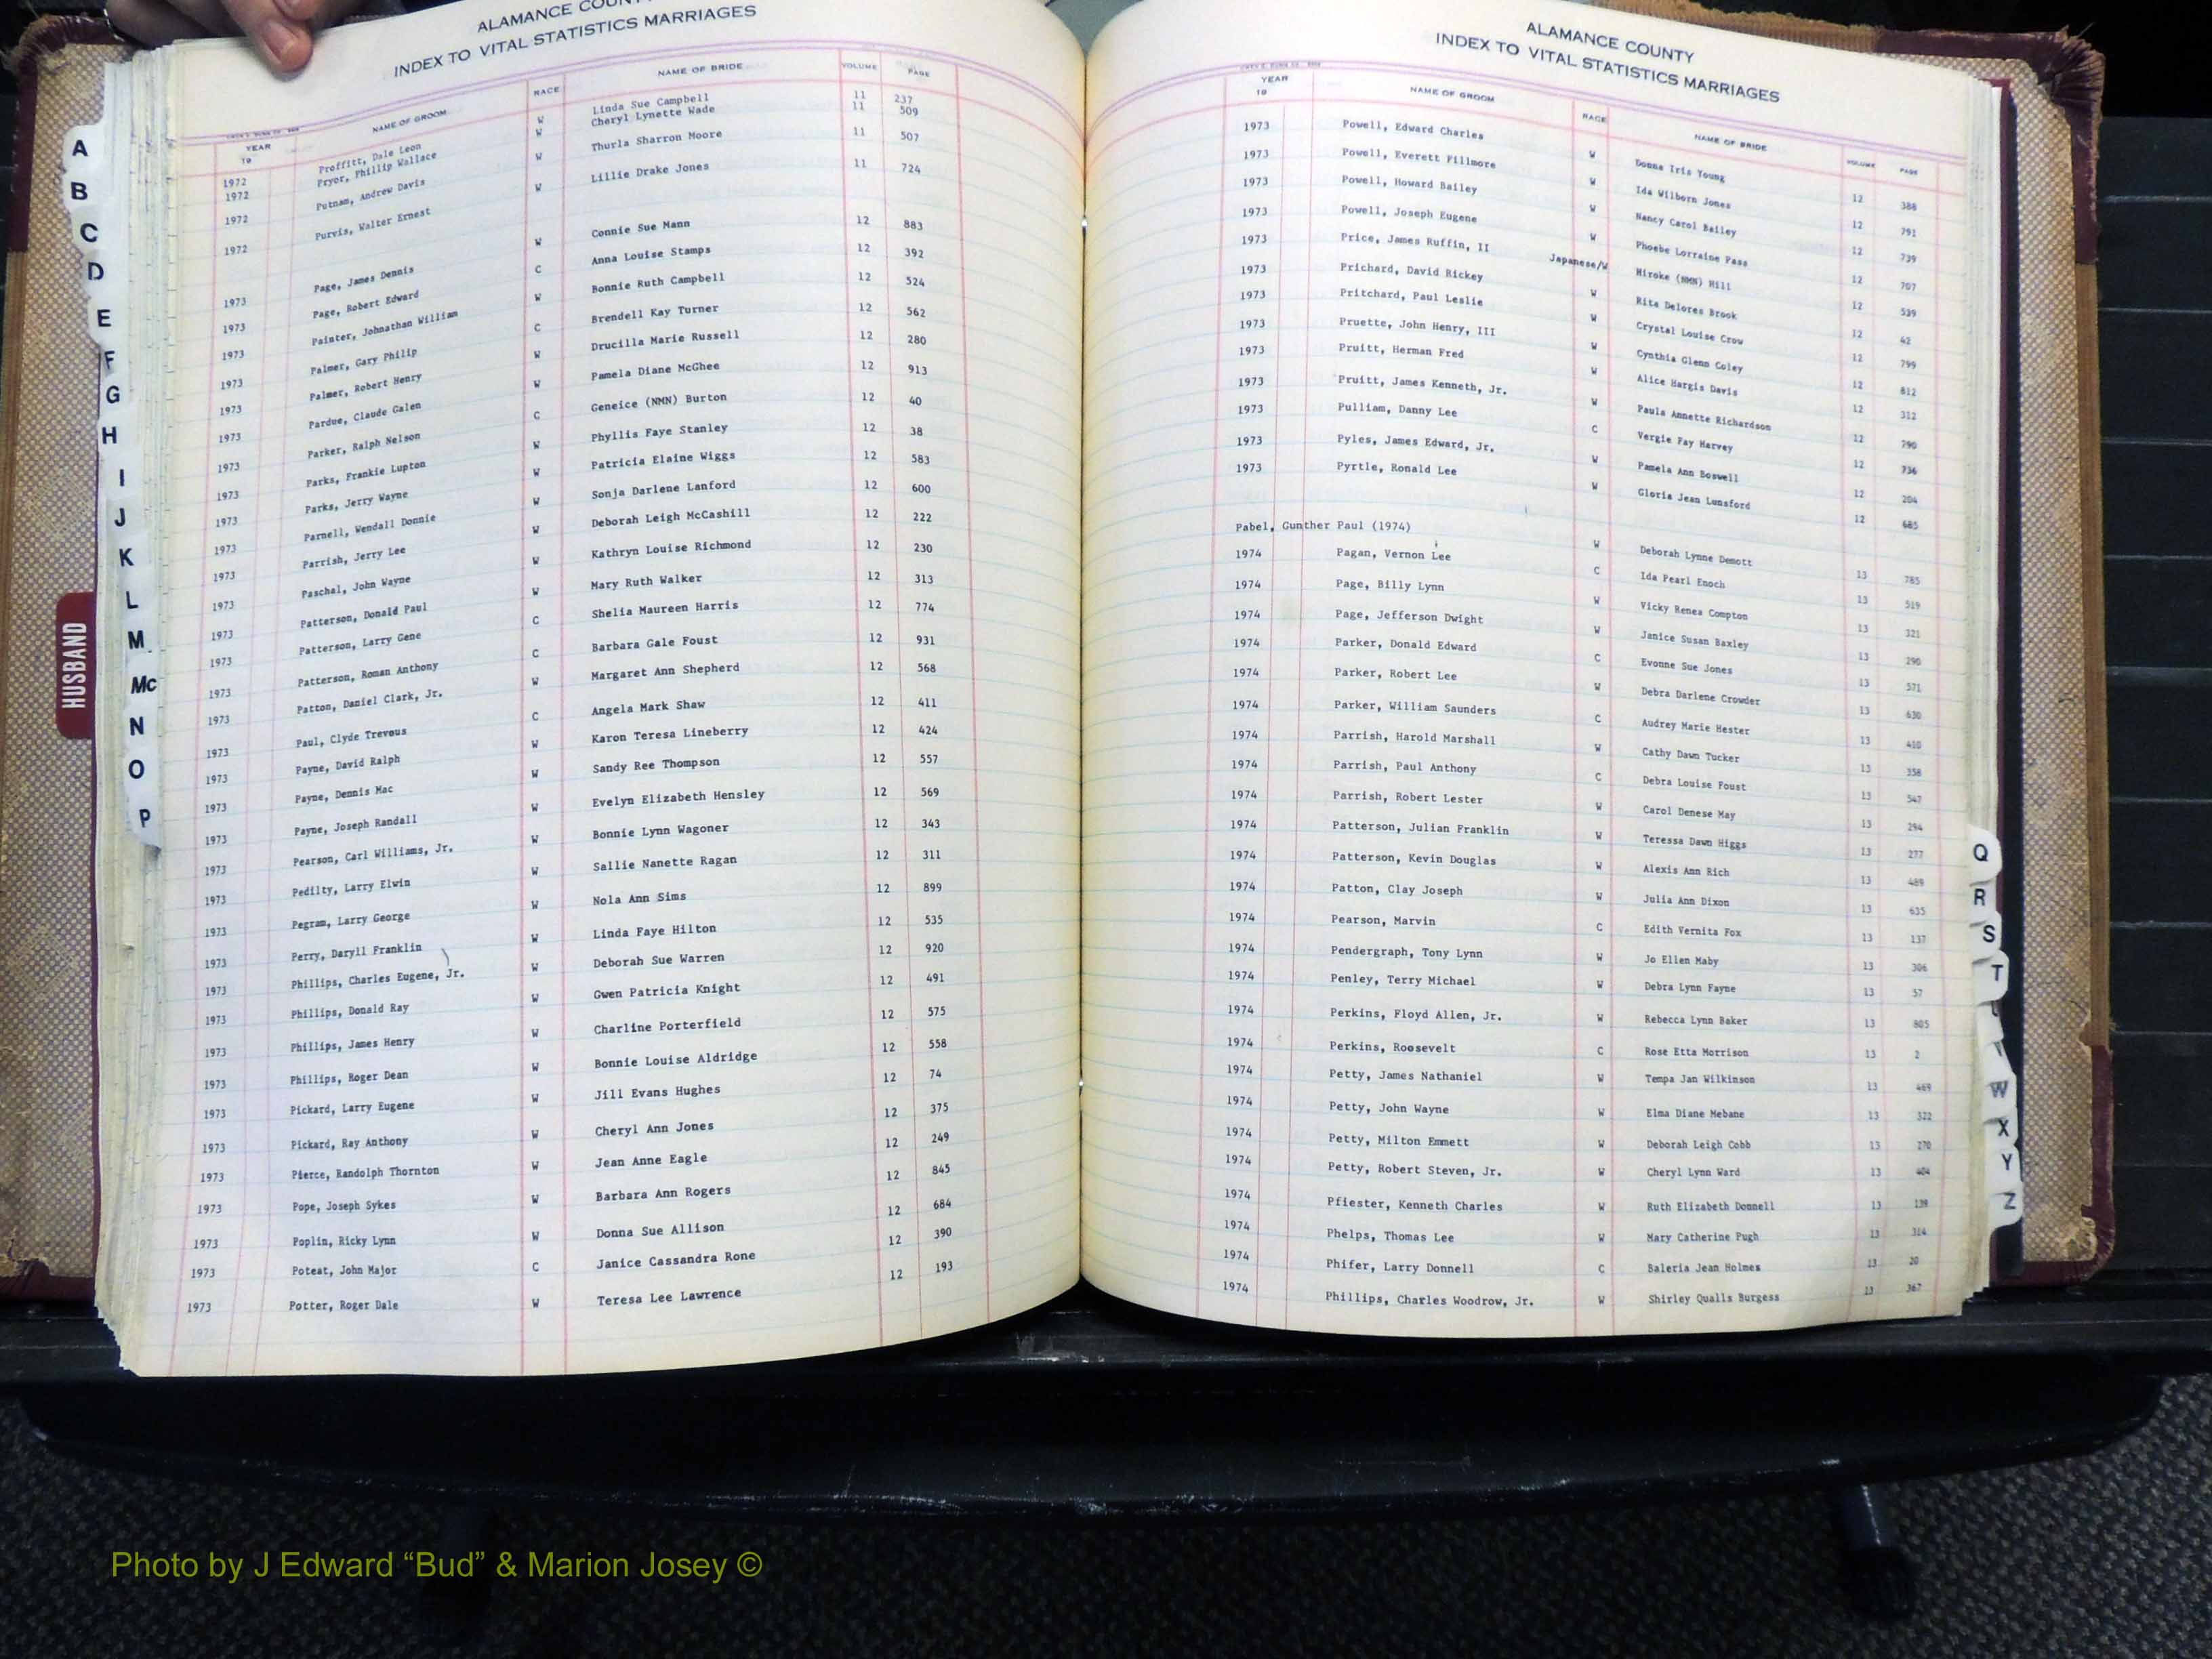 ALAMANCE COUN
INDEX TO VITAL STATISTICS MARRIAGES
YEAR 19 NAME OF GROOM RACE NAME OF BRIDE VOLUME PAGE
1972 Proffitt, Dale Leon W Linda Sue Campbell 11 237
1972 Pryor, Phillip Wallace W Cheryl Lynette Wade 11 509
1972 Putnam, Andrew Davis W Thurla Sharron Moore 11 507
1972 Purvis, Walter Ernest W Lillie Drake Jones 11 724
1973 Page, James Dennis W Connie Sue Mann 12 883
1973 Page, Robert Edward C Anna Louise Stamps 12 392
1973 Painter, Johnathan William W Bonnie Ruth Campbell 12 524
1973 Palmer, Gary Philip C Brendell Kay Turner 12 562
1973 Palmer, Robert Henry W Drucilla Marie Russell 12 280
1973 Pardue, Claude Galen W Pamela Diane McGhee 12 913
1973 Parker, Ralph Nelson C Geneice (NMN) Burton 12 40
1973 Parks, Frankie Lupton W Phyllis Faye Stanley 12 38
1973 Parks, Jerry Wayne W Patricia Elaine Wiggs 12 583
1973 Parnell, Wendall Donnie W Sonja Darlene Lanford 12 600
1973 Parrish, Jerry Lee W Deborah Leigh McCashill 12 222
1973 Paschal, John Wayne W Kathryn Louise Richmond 12 230
1973 Patterson, Donald Paul W Mary Ruth Walker 12 313
1973 Patterson, Larry Gene C Shelia Maureen Harris 12 774
1973 Patterson, Roman Anthony C Barbara Gale Foust 12 931
1973 Patton, Daniel Clark, Jr. W Margaret Ann Shepherd 12 568
1973 Paul, Clyde Trevous C Angela Mark Shaw 12 411
1973 Payne, David Ralph W Karon Teresa Lineberry 12 424
1973 Payne, Dennis Mac W Sandy Ree Thompson 12 557
1973 Payne, Joseph Randall W Evelyn Elizabeth Hensley 12 569
1973 Pearson, Carl Williams, Jr. W Bonnie Lynn Wagoner 12 343
1973 Pedilty, Larry Elwin W Sallie Nanette Ragan 12 311
1973 Pegram, Larry George W Nola Ann Sims 12 899
1973 Perry, Daryll Franklin W Linda Faye Hilton 12 535
1973 Phillips, Charles Eugene, Jr. W Deborah Sue Warren 12 920
1973 Phillips, Donald Ray W Gwen Patricia Knight 12 491
1973 Phillips, James Henry W Charline Porterfield 12 575
1973 Phillips, Roger Dean W Bonnie Louise Aldridge 12 558
1973 Pickard, Larry Eugene W Jill Evans Hughes 12 74
1973 Pickard, Ray Anthony W Cheryl Ann Jones 12 375
1973 Pierce, Randolph Thornton W Jean Anne Eagle 12 249
1973 Pope, Joseph Sykes W Barbara Ann Rogers 12 845
1973 Poplin, Ricky Lynn W Donna Sue Allison 12 684
1973 Poteat, John Major C Janice Cassandra Rone 12 390
1973 Potter, Roger Dale W Teresa Lee Lawrence 12 193
A
B
C
D
E
F
G
H
I
J
K
L
M
Mc
N
O
P
HUSBAND
ALAMANCE COUNTY
INDEX TO VITAL STATISTICS MARRIAGES
YEAR 19 NAME OF GROOM RACE NAME OF BRIDE VOLUME PAGE
1973 Powell, Edward Charles W Donna Iris Young 12 388
1973 Powell, Everett Fillmore W Ida Wilborn Jones 12 791
1973 Powell, Howard Bailey W Nancy Carol Bailey 12 739
1973 Powell, Joseph Eugene W Phoebe Lorraine Pass 12 707
1973 Price, James Ruffin, II Japanese/W Hiroke (NMN) Hill 12 539
1973 Prichard, David Rickey W Rita Delores Brook 12 42
1973 Pritchard, Paul Leslie W Crystal Louise Crow 12 799
1973 Pruette, John Henry, III W Cynthia Glenn Coley 12 812
1973 Pruitt, Herman Fred W Alice Hargis Davis 12 312
1973 Pruitt, James Kenneth, Jr. W Paula Annette Richardson 12 790
1973 Pulliam, Danny Lee C Vergie Fay Harvey 12 736
1973 Pyles, James Edward, Jr. W Pamela Ann Boswell 12 204
1973 Pyrtle, Ronald Lee W Gloria Jean Lunsford 12 685
Pabel, Gunther Paul (1974) W Deborah Lynne Demott 13 785
1974 Pagan, Vernon Lee C Ida Pearl Enoch 13 519
1974 Page, Billy Lynn W Vicky Renea Compton 13 321
1974 Page, Jefferson Dwight W Janice Susan Baxley 13 290
1974 Parker, Donald Edward C Evonne Sue Jones 13 571
1974 Parker, Robert Lee W Debra Darlene Crowder 13 630
1974 Parker, William Saunders C Audrey Marie Hester 13 410
1974 Parrish, Harold Marshall W Cathy Dawn Tucker 13 358
1974 Parrish, Paul Anthony C Debra Louise Foust 13 547
1974 Parrish, Robert Lester W Carol Denese May 13 294
1974 Patterson, Julian Franklin W Teressa Dawn Higgs 13 277
1974 Patterson, Kevin Douglas W Alexis Ann Rich 13 489
1974 Patton, Clay Joseph W Julia Ann Dixon 13 635
1974 Pearson, Marvin C Edith Vernita Fox 13 137
1974 Pendergraph, Tony Lynn W Jo Ellen Maby 13 306
1974 Penley, Terry Michael W Debra Lynn Fayne 13 57
1974 Perkins, Floyd Allen, Jr. W Rebecca Lynn Baker 13 805
1974 Perkins, Roosevelt C Rose Etta Morrison 13 2
1974 Petty, James Nathaniel W Tempa Jan Wilkinson 13 469
1974 Petty, John Wayne W Elma Diane Mebane 13 322
1974 Petty, Milton Emmett W Deborah Leigh Cobb 13 270
1974 Petty, Robert Steven, Jr. W Cheryl Lynn Ward 13 404
1974 Pfiester, Kenneth Charles W Ruth Elizabeth Donnell 13 139
1974 Phelps, Thomas Lee W Mary Catherine Pugh 13 314
1974 Phifer, Larry Donnell C Baleria Jean Holmes 13 20
1974 Phillips, Charles Woodrow, Jr. W Shirley Qualls Burgess 13 367
Q
R
S
T
W
X
Y
Z
Photo by J Edward “Bud” & Marion Josey ©